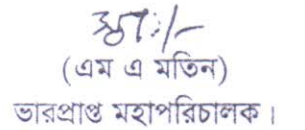 স্বা:/-
(এম এ মতিন)
ভারপ্রাপ্ত মহাপরিচালক।